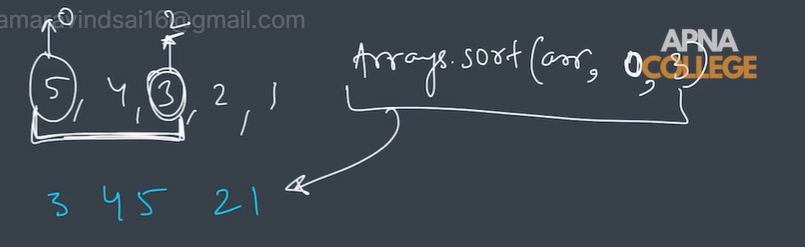 amaravindsai16@gmail.com
0 2
5, 4, 3, 2, 1
Arrays.sort(arr, 0, 3)
APNA
COLLEGE
3 4 5 2 1